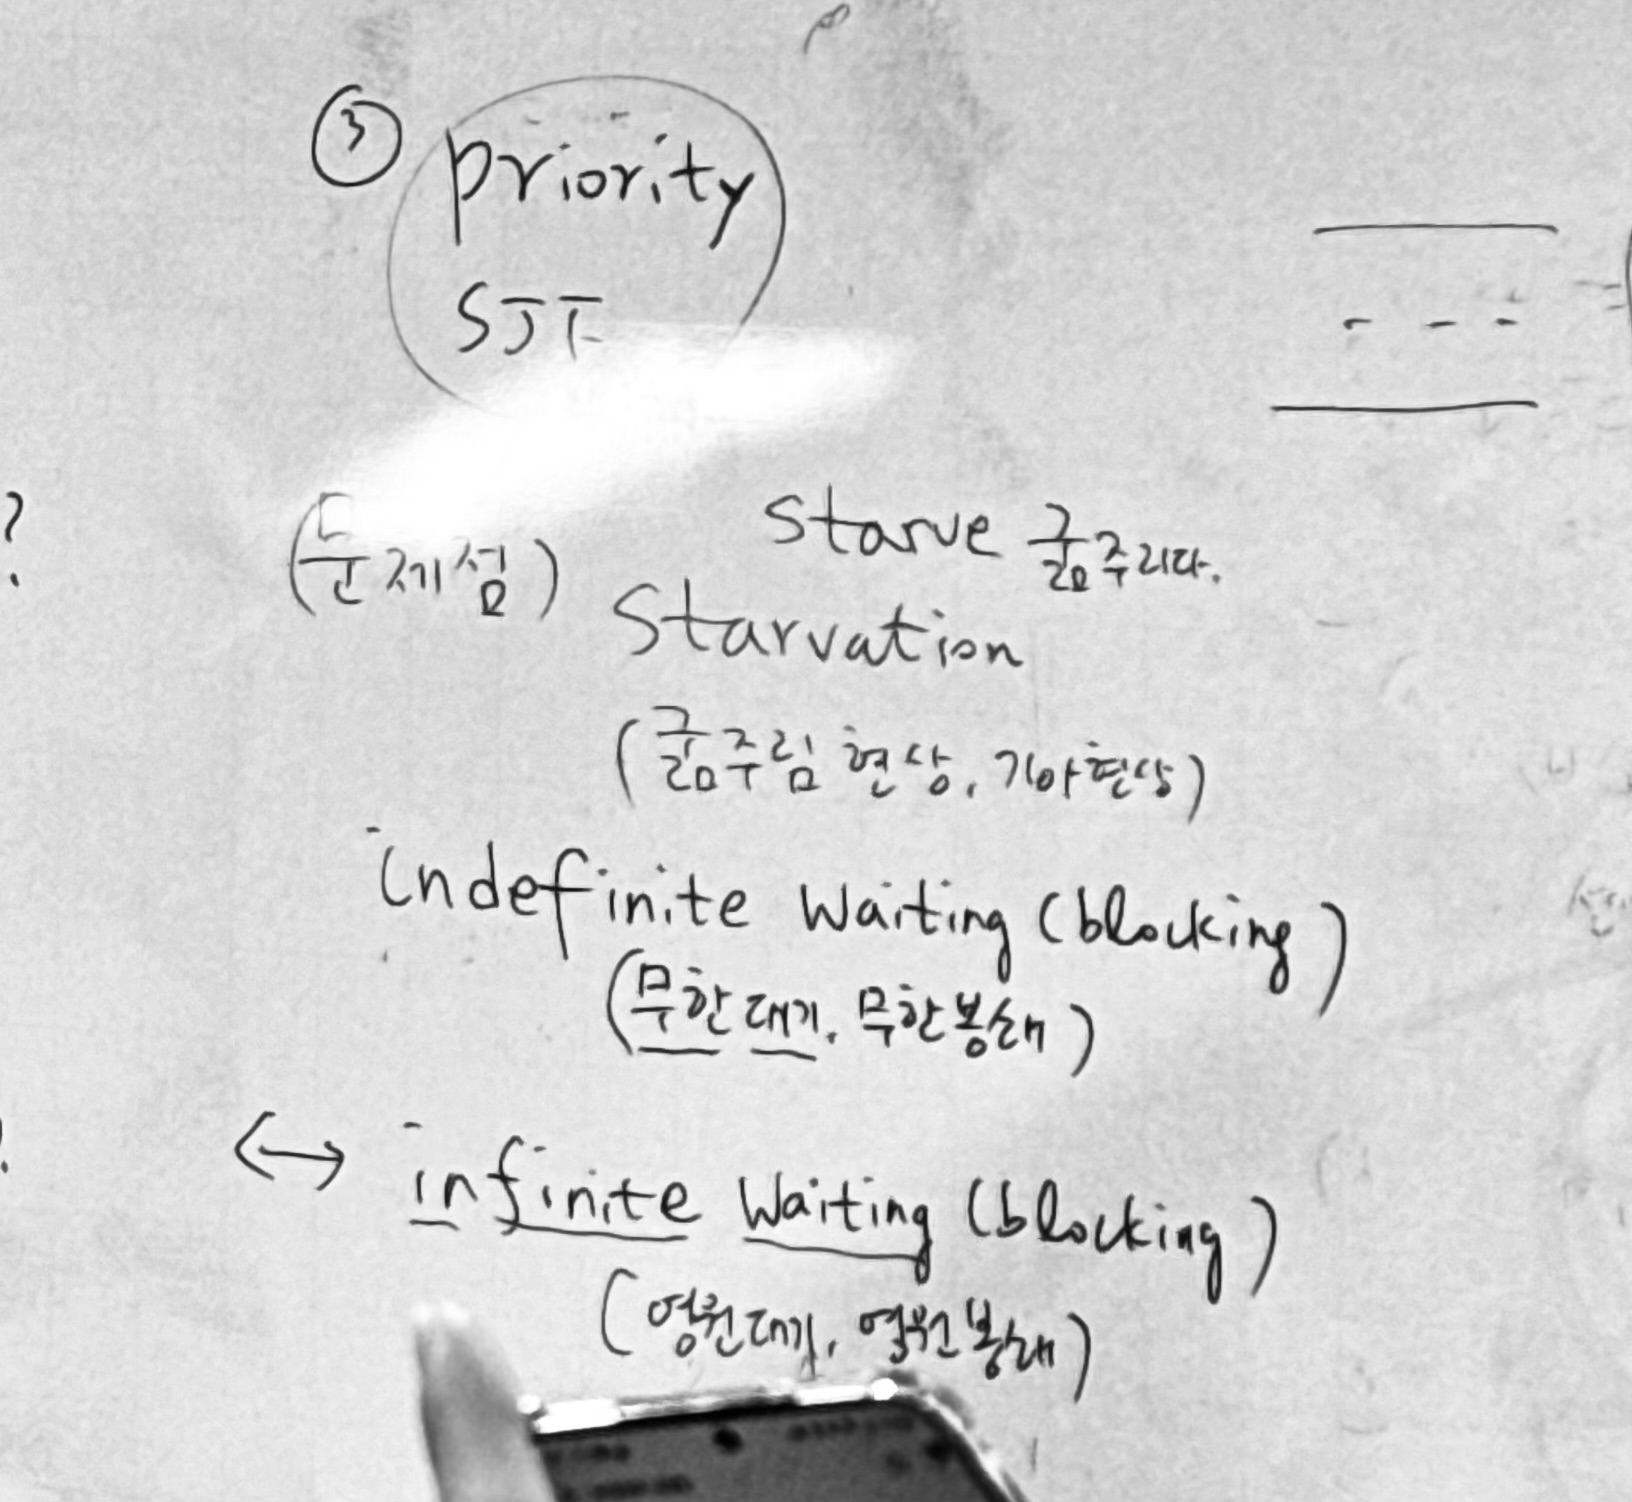 ③ priority
SJF
(문제점)
starve 굶주리다.
Starvation
(굶주림 현상, 기아현상)
indefinite waiting (blocking)
(무한 대기, 무한봉쇄)
?
<-> infinite waiting (blocking)
(영원대기, 영원봉쇄)